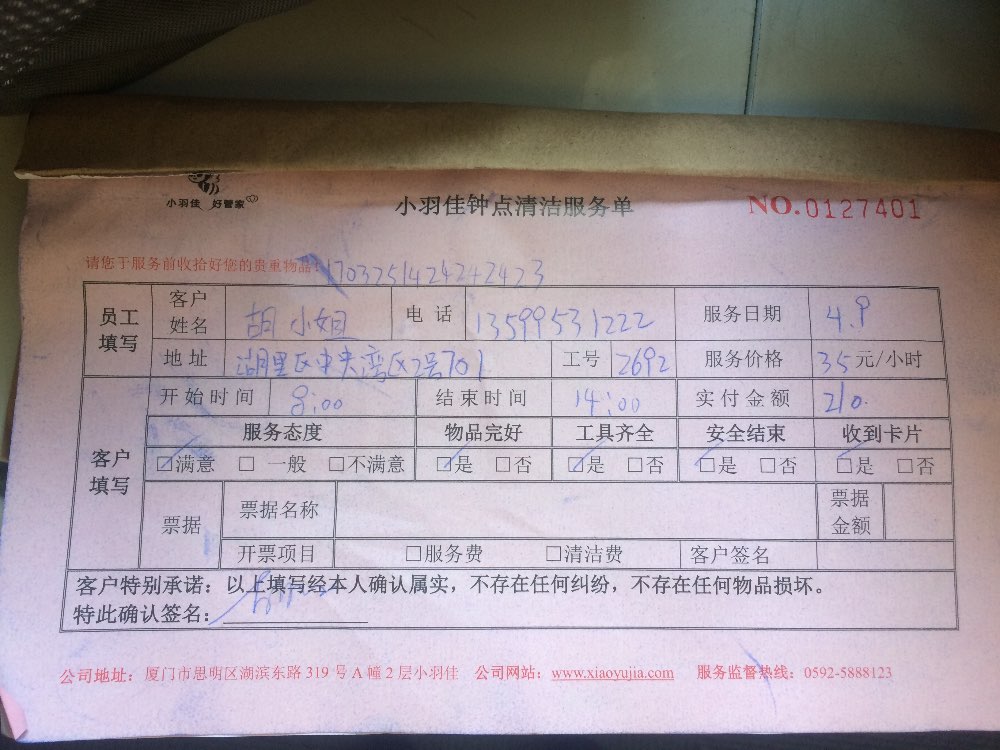 小羽佳 好管家
小羽佳钟点清洁服务单 NO.0127401
请您于服务前收拾好您的贵重物品! 1703251424242423
员工填写 客户姓名 胡小姐 电话 13599531222 服务日期 4.9
地址 湖里区中央湾区2号701 工号 2692 服务价格 35元/小时
客户填写 开始时间 8:00 结束时间 14:00 实付金额 210.
服务态度 物品完好 工具齐全 安全结束 收到卡片
☑满意 □一般 □不满意 ☑是 □否 ☑是 □否 ☑是 □否 ☑是 □否
票据 票据名称 票据金额
开票项目 □服务费 □清洁费 客户签名
客户特别承诺：以上填写经本人确认属实，不存在任何纠纷，不存在任何物品损坏。
特此确认签名：
公司地址：厦门市思明区湖滨东路 319 号 A 幢 2 层小羽佳 公司网站：www.xiaoyujia.com 服务监督热线：0592-5888123